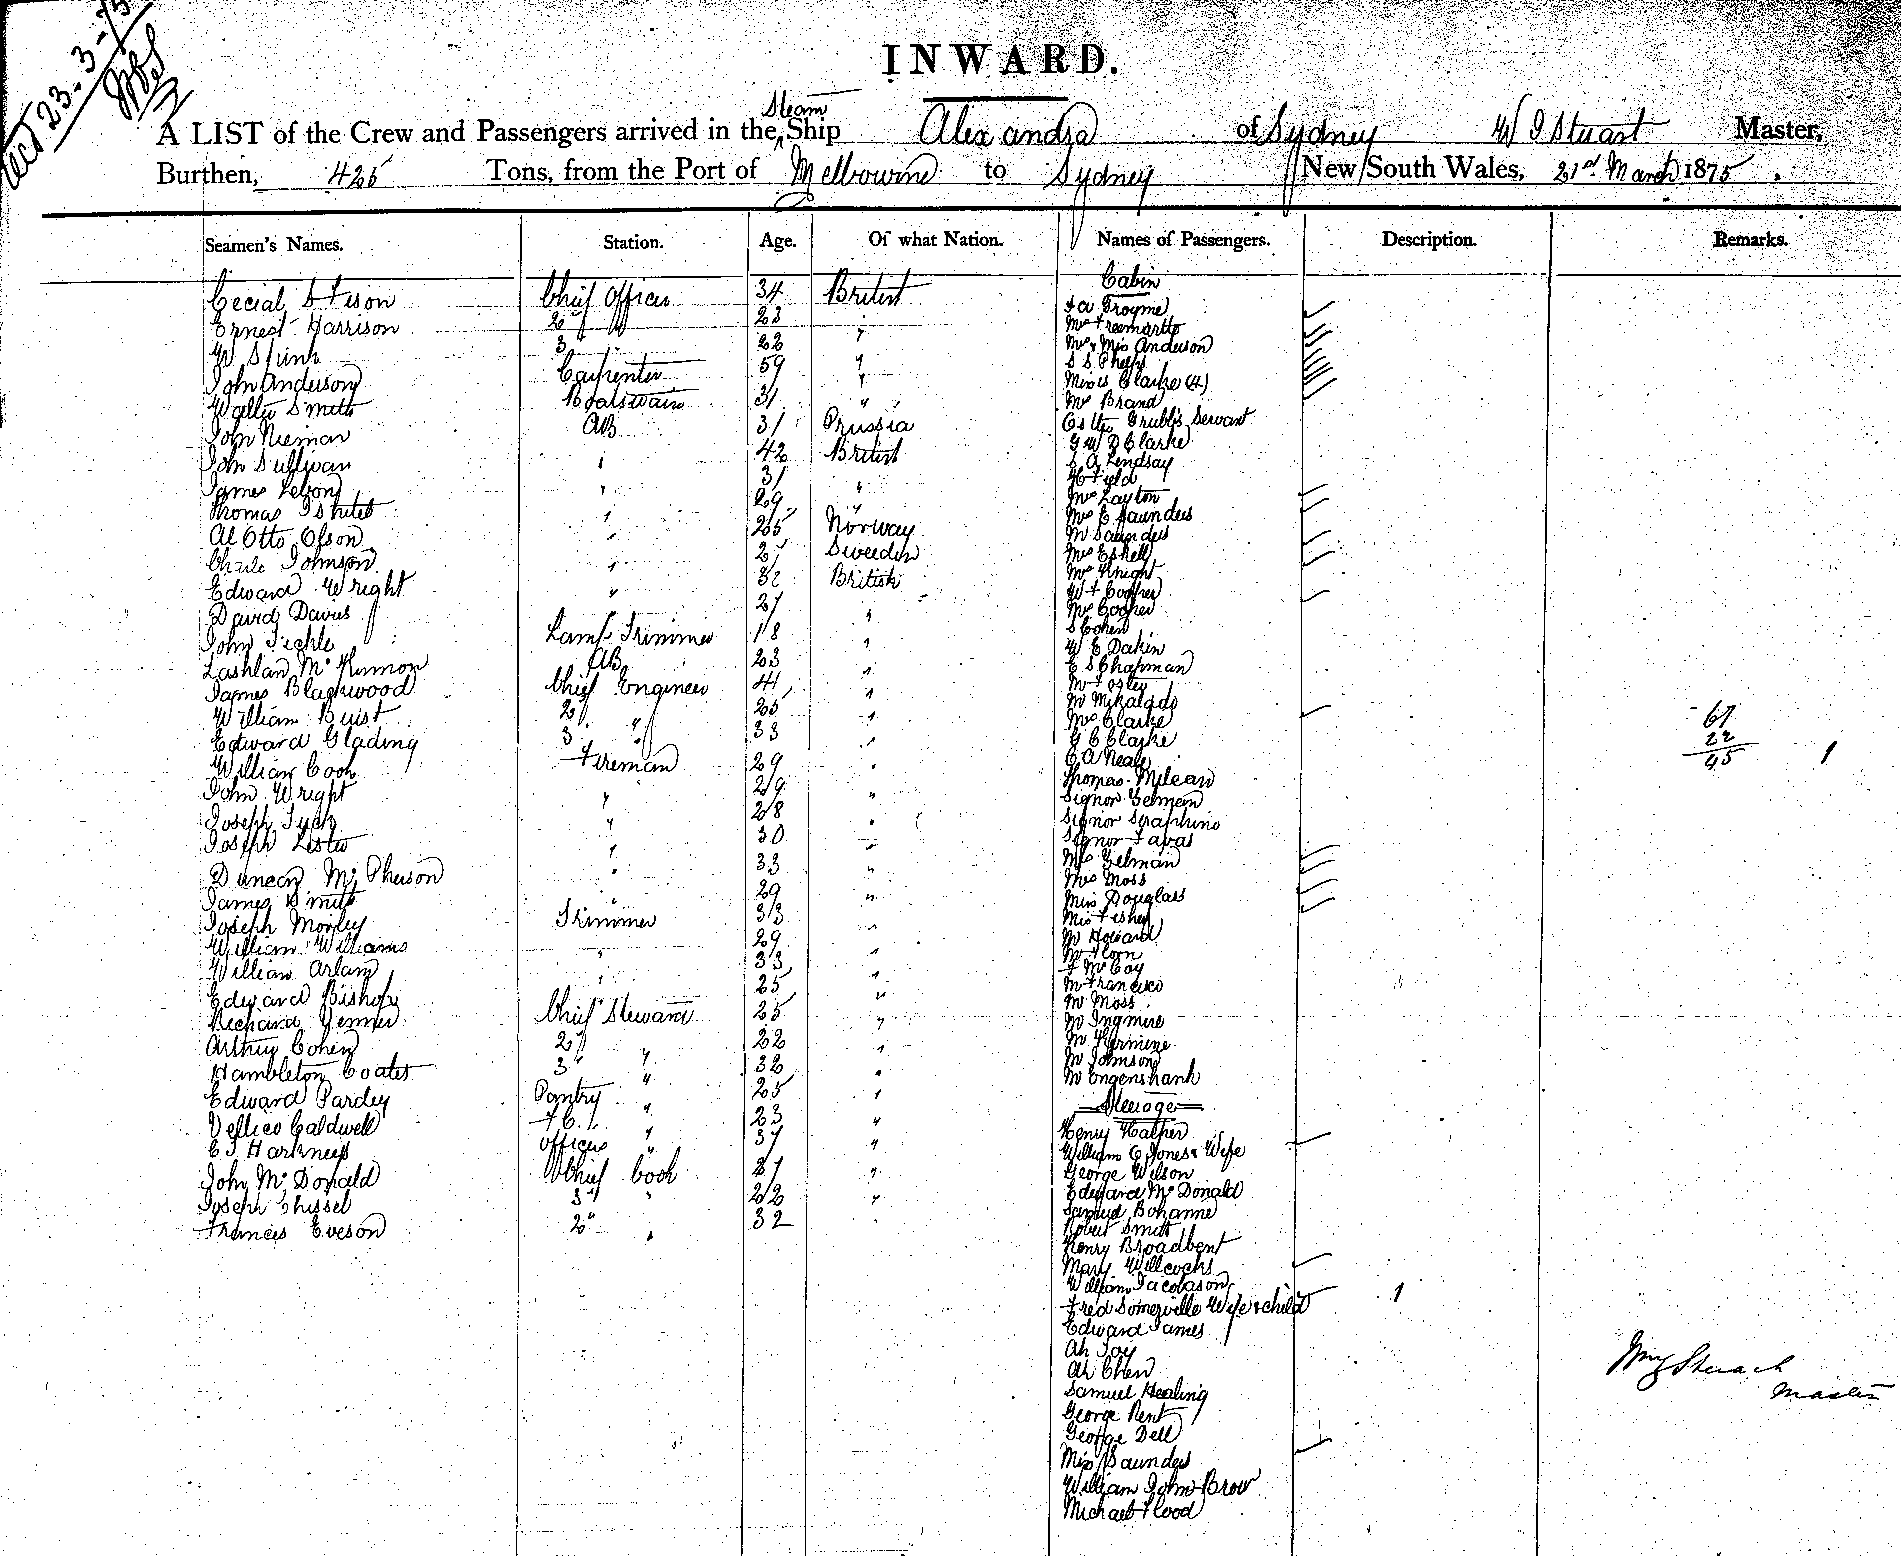 Rec'd 23-3-75
INWARD.
Steam
A LIST of the Crew and Passengers arrived in the Ship Alexandra of Sydney W I Stuart Master,
Burthen, 425 Tons, from the Port of Melbourne to Sydney New South Wales, 21st March 1875.
Seamen's Names. Station. Age. Of what Nation. Names of Passengers. Description. Remarks.
Cabin
Cecial S Fison Chief Officer 34 British
Ernest Harrison 2nd " 23 "
W Spink 3 22 "
John Anderson Carpenter 59 "
Walter Smith Boatswain 31 "
John Nieman AB 31 Prussia
John Sullivan " 42 British
James " 31 "
Thomas " 29 "
Al Otto Olson " 25 Norway
Charle Johnson " 27 Sweeden
Edward Wright " 32 British
David Davies 27 "
John Tickle Lamp Trimmer 18 "
Lashlan McKinnon AB 23 "
James Blackwood Chief Engineer 41 "
William Buist 2 " 25 "
Edward Glading 3 " 33 "
William Cook Fireman 29 "
John Wright " 29 "
Joseph " 28 "
Joseph Lister " 30 "
Duncan McPherson " 33 "
James Smith 29 "
Joseph Morley Trimmer 33 "
William Williams " 29 "
William Arlam " 33 "
Edward Bishop 25 "
Richard Venner Chief Steward 25 "
Arthur Cohen 2 " 22 "
Hambleton Coates 3 " 32 "
Edward Pardey Pantry " 25 "
Caldwell F.C. " 23 "
E J Harkness Officers " 37 "
John McDonald Chief Cook 27 "
Joseph Chissel 3 " 22 "
Francis Eveson 2 " 32
F A Groyme
Mrs
Mr & Miss Anderson
S S Phelps
Misses Clarke (4)
Mr Brand
Grubb's Servant
G W D Clarke
S A Lindsay
H Field
Mrs Layton
Mrs E Saunders
Mr Saunders
Mrs Eshell
Mrs Knight
W F Cooper
Mrs Cooper
S Cohen
W E Dakin
E S Chapman
Mr Fosley
Mr
Mrs Clarke
G C Clarke
C A Neale
Thomas McLean
Signor
Signor Seraphino
Signor Favas
Mrs Gelman
Mrs Moss
Miss Douglass
Miss Fisher
Mr Howard
Mr Horn
F McCoy
Mr Francisco
Mr Moss
Mr Ingmire
Mr
Mr Johnson
Mr Engenshank
Steerage
Henry Halper
William C Jones & Wife
George Wilson
Edward McDonald
Samuel Bohanne
Robert Smith
Henry Broadbent
Mary Willcocks
William Jacobason
Fred Somerville Wife & child 1
Edward James
Ah Toy
Ah Chen
Samuel Healing
George Kent
George Dell
Miss Saunders
William John Brow
Michael Flood
67
22
45 1
Master